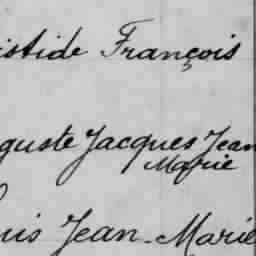 istide François
guste Jacques Jean
Marie
uis Jean-Marie